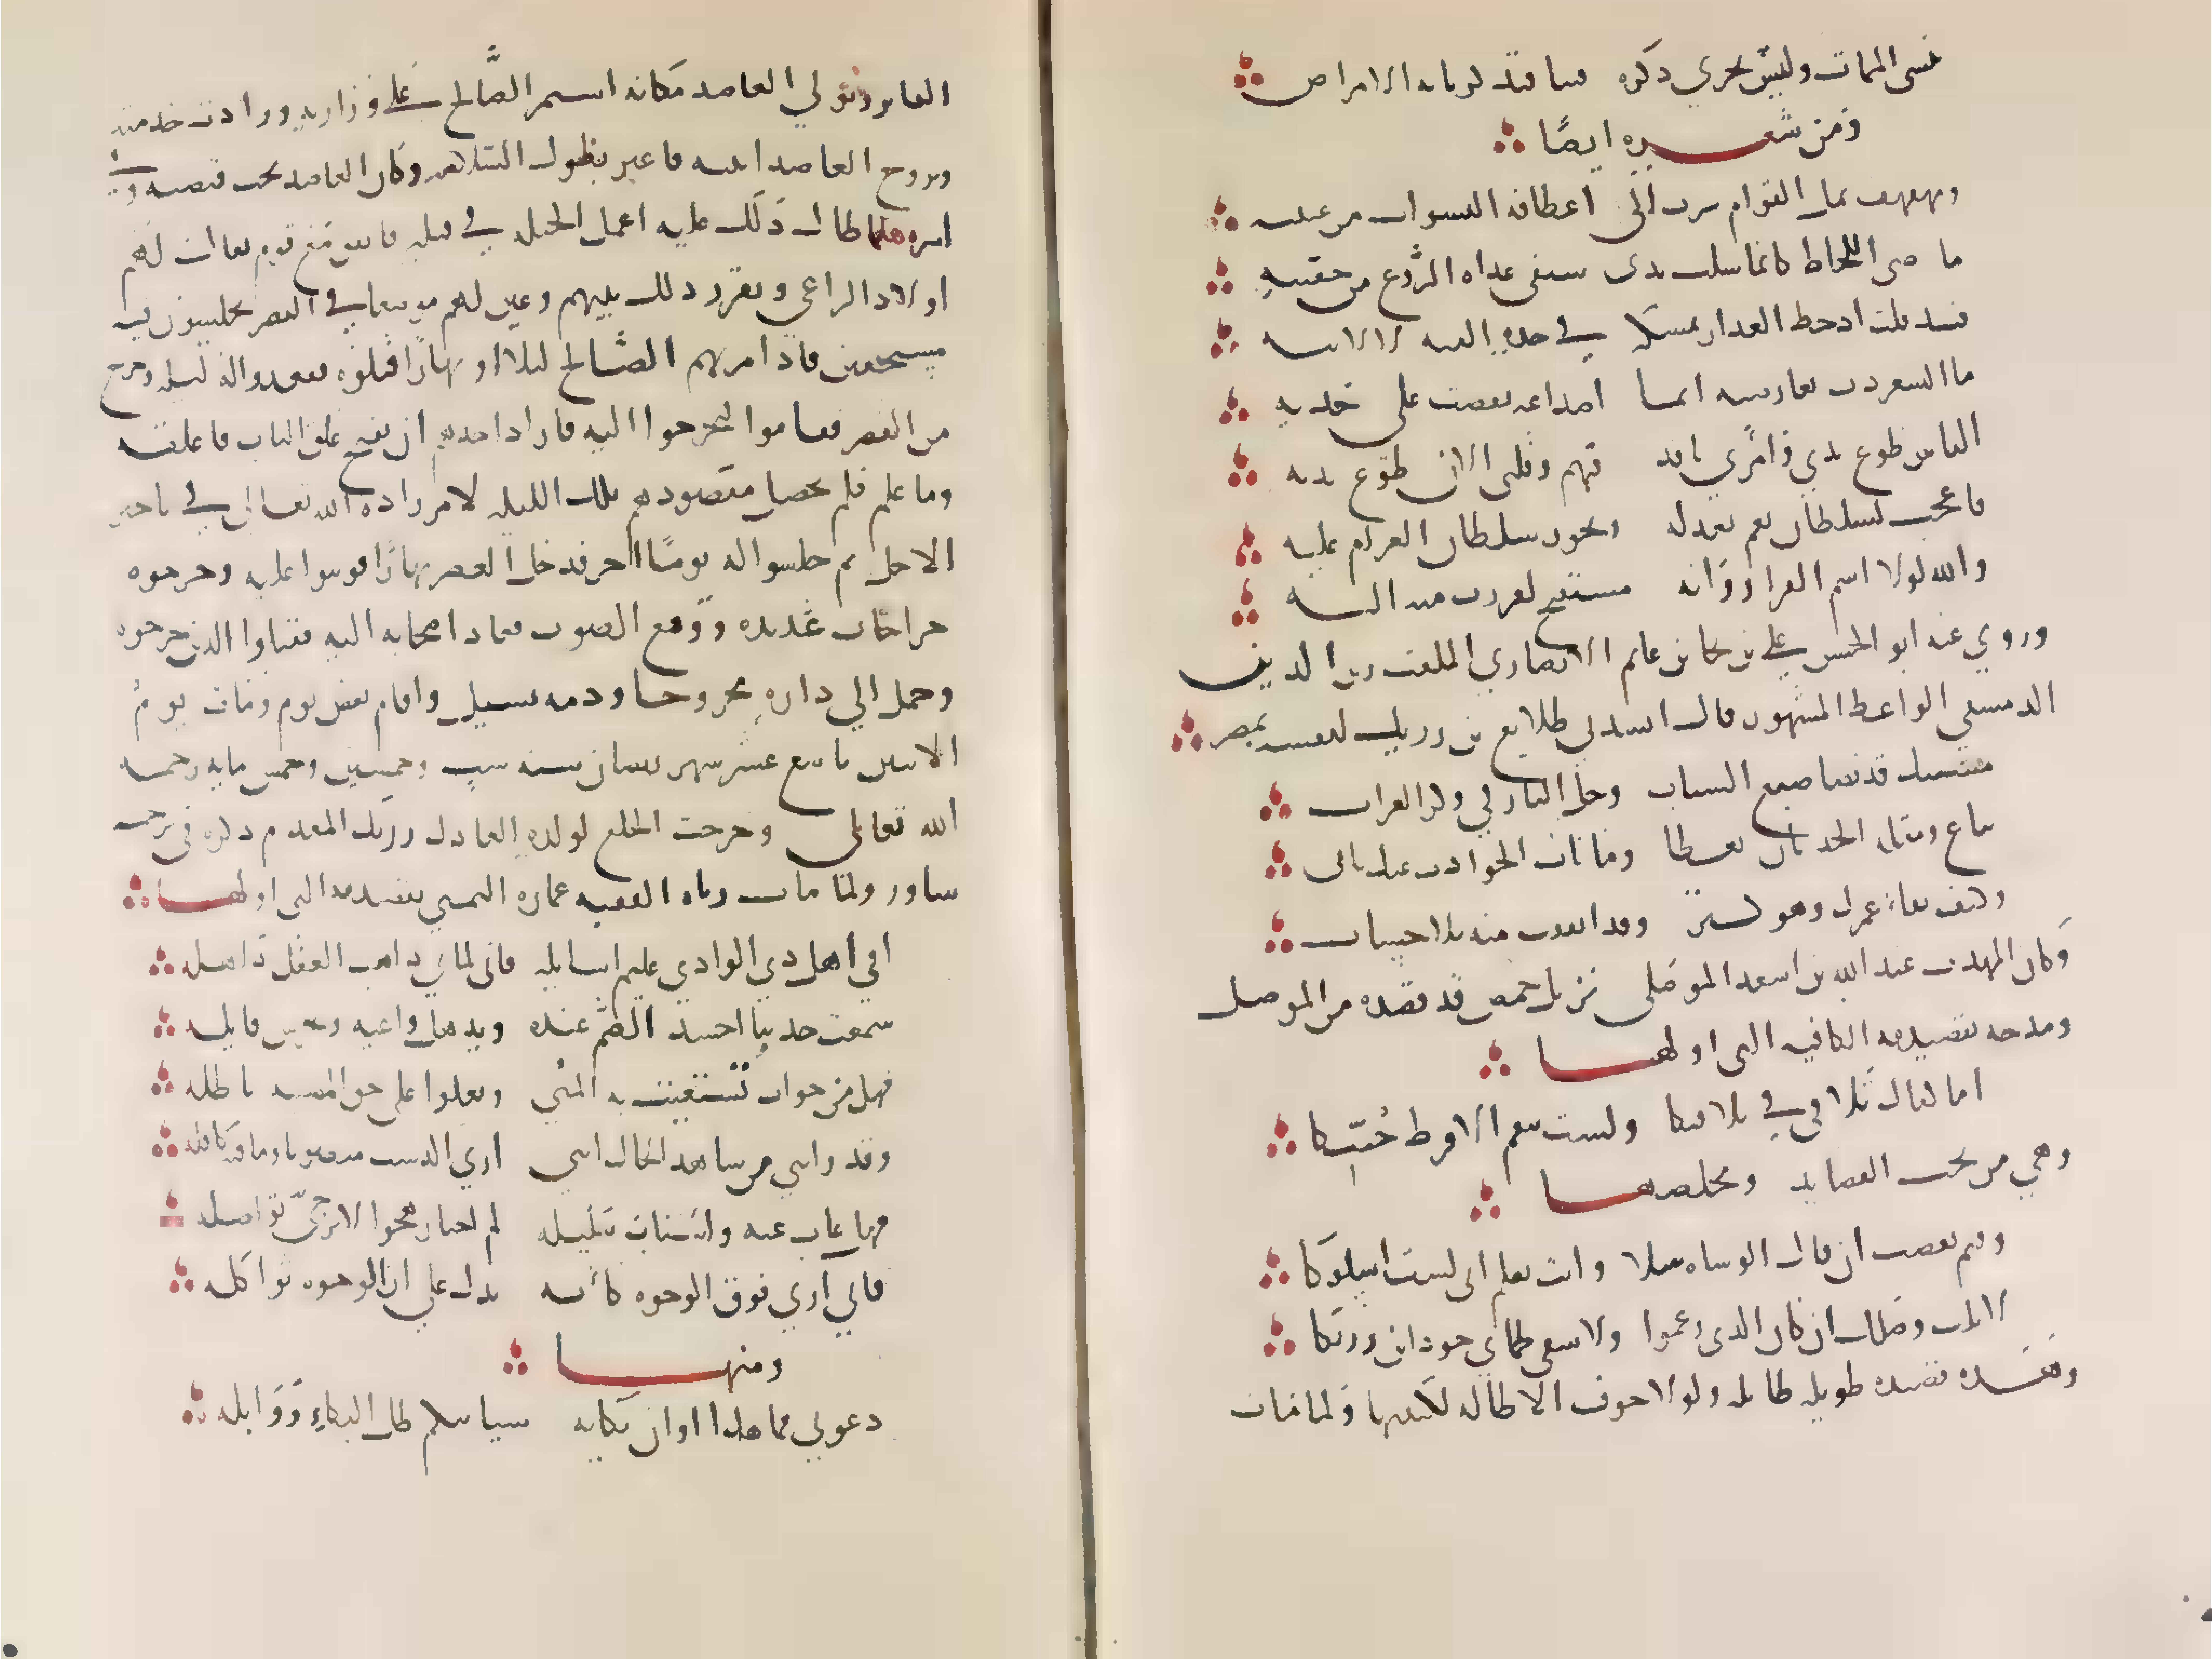 ننسى الممات وليس يجري ذكره فينا فتذكرنا به الامراض
ومن شعره ايضًا
ومهفهف ثمل القوام سرت الى اعطافه النشوات من عينيه
ماضي اللحاظ كانما سلت يدى سيفى غداة الروع من جفنيه
قد قلت اذ خط العذار بمسكه في خده الفيه لا لاميه
ما الشعر دب بعارضيه انما اصداغه نفضت على خديه
الناس طوع يدي وامري نافذ فيهم وقلبى الان طوع يديه
فاعجب لسلطان يعم بعدله ويجور سلطان الغرام عليه
والله لولا اسم الفرار وانه مستقبح لفررت منه اليه
وروي عنه ابو الحسن علي بن نجا بن غانم الانصاري الملقب زين الدين
الدمشقي الواعظ المشهور قال انشدني طلايع بن رزيك لنفسه بمصر
مشيبك قد نضا صبغ الشباب وحل الباز في وكر الغراب
تنام ومقلة الحدثان يقظا وما ناب الحوادث عنك نابى
وكيف بقاء عمرك وهو كنز وقد انفقت منه بلا حساب
وكان المهذب عبد الله بن اسعد الموصلى نزيل حمص قد قصده من الموصل
ومدحه بقصيدته الكافيه التى اولها
اما كفاك تلافي في تلافيكا ولست تنقم الا فرط حُبيكا
وهي من نخب القصايد ومخلصها
وفيم تغضب ان قال الوشاه سلا وانت تعلم انى لست اسلوكا
لا نلت وصلك ان كان الذى زعموا ولا سقى ظماي جود ابن رزيكا
وهذه قصيده طويله طايله ولولا خوف الاطاله لكتبتها ولما مات
الفايز وتولي العاضد مكانه استمر الصَّالح على وزارته وزادت حرمته
وتزوج العاضد ابنته فاغتر بطول السلامه وكان العاضد تحت قبضته وفي
اسره فلما طال ذلك عليه اعمل الحيله في قتله فاتفق مع قوم يقال لهم
اولاد الراعي وتقرر ذلك بينهم وعين لهم موضعا في القصر يجلسون فيه
مستخفين فاذا مر بهم الصَّالح ليلا او نهارًا قتلوه فقعدوا له ليله وخرج
من القصر فقاموا ليخرجوا اليه فاراد احدهم ان يفتح غلق الباب فاغلقه
وما علم فلم يحصل مقصودهم تلك الليله لامر اراده الله تعالى في تاخير
الاجل ثم جلسوا له يومًا اخر فدخل القصر نهارًا فوثبوا عليه وجرحوه
جراحات عديده ووقع الصوت فعاد اصحابه اليه فقتلوا الذين جرحوه
وحمل الي داره مجروحا ودمه يسيل واقام بعض يوم ومات يوم
الاثنين تاسع عشر شهر رمضان سنه ست وخمسين وخمس مايه رحمه
الله تعالى وخرجت الخلع لولده العادل رزيك المقدم ذكره في ترجمه
شاور ولما مات رثاه الفقيه عماره اليمني بقصيدته التى اولها
افي اهل ذي النادي عليم اسايله فانى لما بي ذاهب العقل ذاهله
سمعت حديثا احسد الصم عنده ويذهل واعيه ويخرس قايله
فهل من جواب تستغيث به المنى ويعلوا على حق المصيبه باطله
وقد رابني من شاهد الحال انني اري الدست منصوبا وما فيه كافله
فهل غاب عنه واستناب سليله ام اختار هجرا لا يرجى تواصله
فاني اري فوق الوجوه كابه تدل على ان الوجوه ثواكله
ومنها
دعوني فما هذا اوان بكايه سياتيكم طل البكاء ووابله